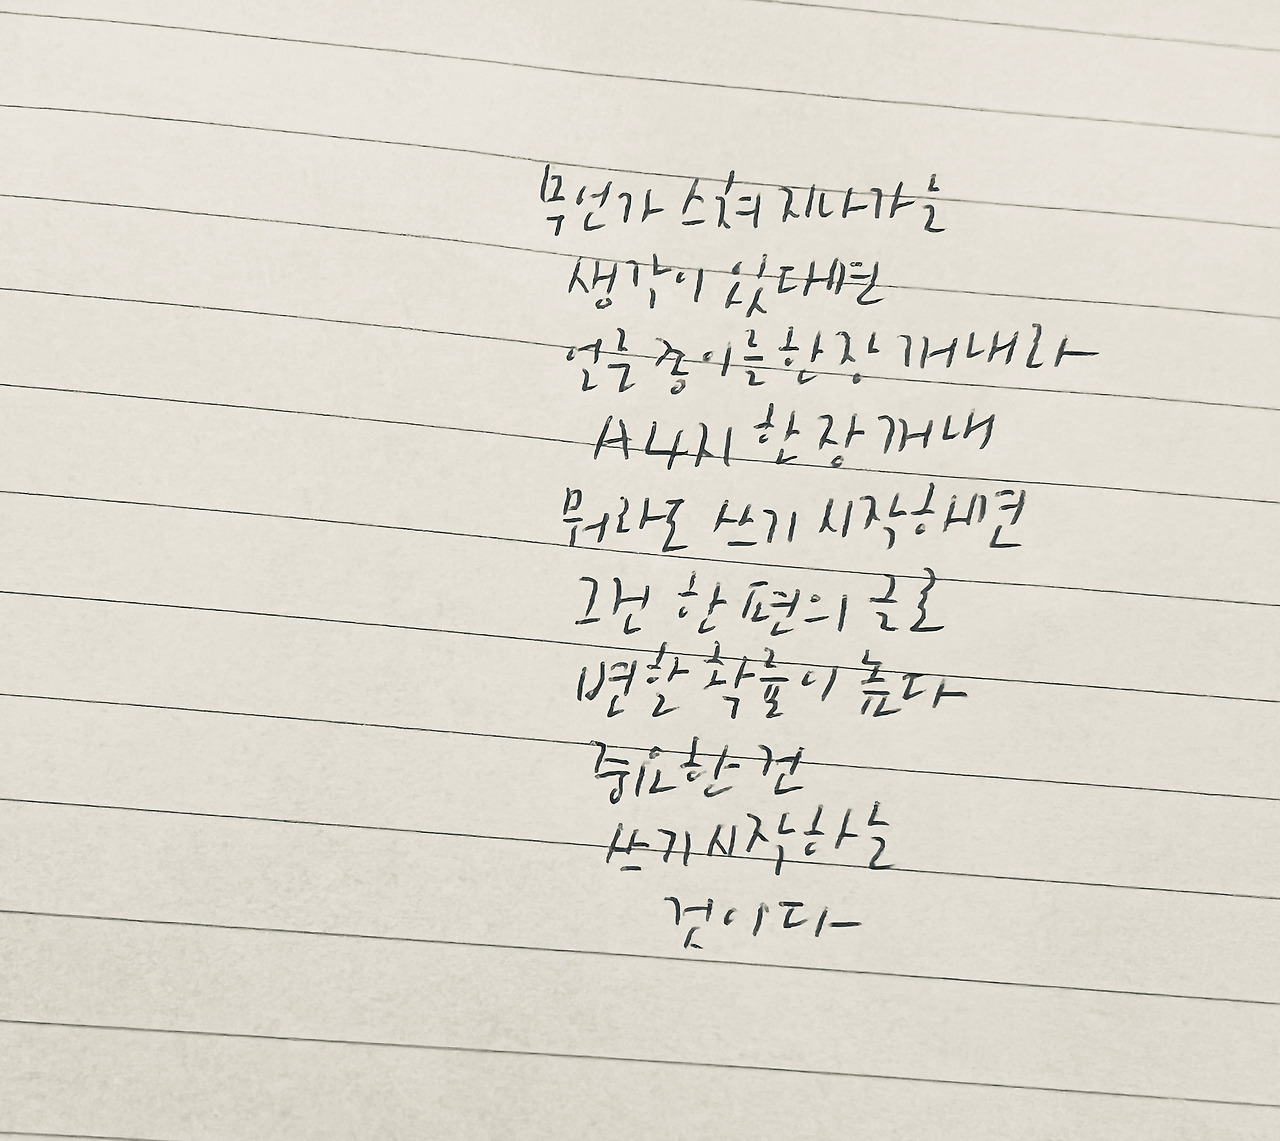 무언가 스쳐 지나가는
생각이 있다면
얼른 종이를 한 장 꺼내라
A4지 한 장 꺼내
뭐라도 쓰기 시작하면
그건 한 편의 글로
변할 확률이 높다
중요한 건
쓰기 시작하는
것이다